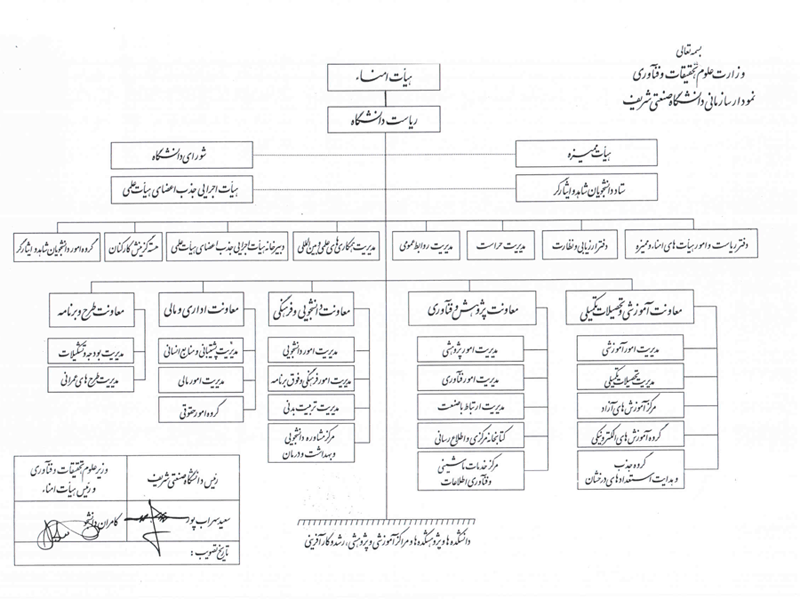 بسمه تعالی
وزارت علوم تحقیقات و فنآوری
نمودار سازمانی دانشگاه صنعتی شریف
هیأت امناء
ریاست دانشگاه
هیأت ممیزه
شورای دانشگاه
ستاد دانشجویان شاهد و ایثارگر
هیأت اجرایی جذب اعضای هیأت علمی
دفتر ریاست و امور هیأت های امناء و ممیزه
دفتر ارزیابی و نظارت
مدیریت حراست
مدیریت روابط عمومی
مدیریت همکاری های علمی و بین المللی
دبیرخانه هیأت اجرایی جذب اعضای هیأت علمی
هسته گزینش کارکنان
گروه امور دانشجویان شاهد و ایثارگر
معاونت آموزشی و تحصیلات تکمیلی
مدیریت امور آموزشی
مدیریت تحصیلات تکمیلی
مرکز آموزش های آزاد
گروه آموزش های الکترونیکی
گروه جذب
و هدایت استعدادهای درخشان
معاونت پژوهش و فنآوری
مدیریت امور پژوهشی
مدیریت امور فنآوری
مدیریت ارتباط با صنعت
کتابخانه مرکزی و اطلاع رسانی
مرکز خدمات ماشینی
و فنآوری اطلاعات
معاونت دانشجویی و فرهنگی
مدیریت امور دانشجویی
مدیریت امور فرهنگی و فوق برنامه
مدیریت تربیت بدنی
مرکز مشاوره دانشجویی
و بهداشت و درمان
معاونت اداری و مالی
مدیریت پشتیبانی و منابع انسانی
مدیریت امور مالی
گروه امور حقوقی
معاونت طرح و برنامه
مدیریت بودجه و تشکیلات
مدیریت طرح های عمرانی
دانشکده ها و پژوهشکده ها و مراکز آموزشی و پژوهشی، رشد و کارآفرینی
رئیس دانشگاه صنعتی شریف
سعید سهراب پور
وزیر علوم تحقیقات و فنآوری
و رئیس هیأت امناء
کامران دانشجو
تاریخ تصویب :